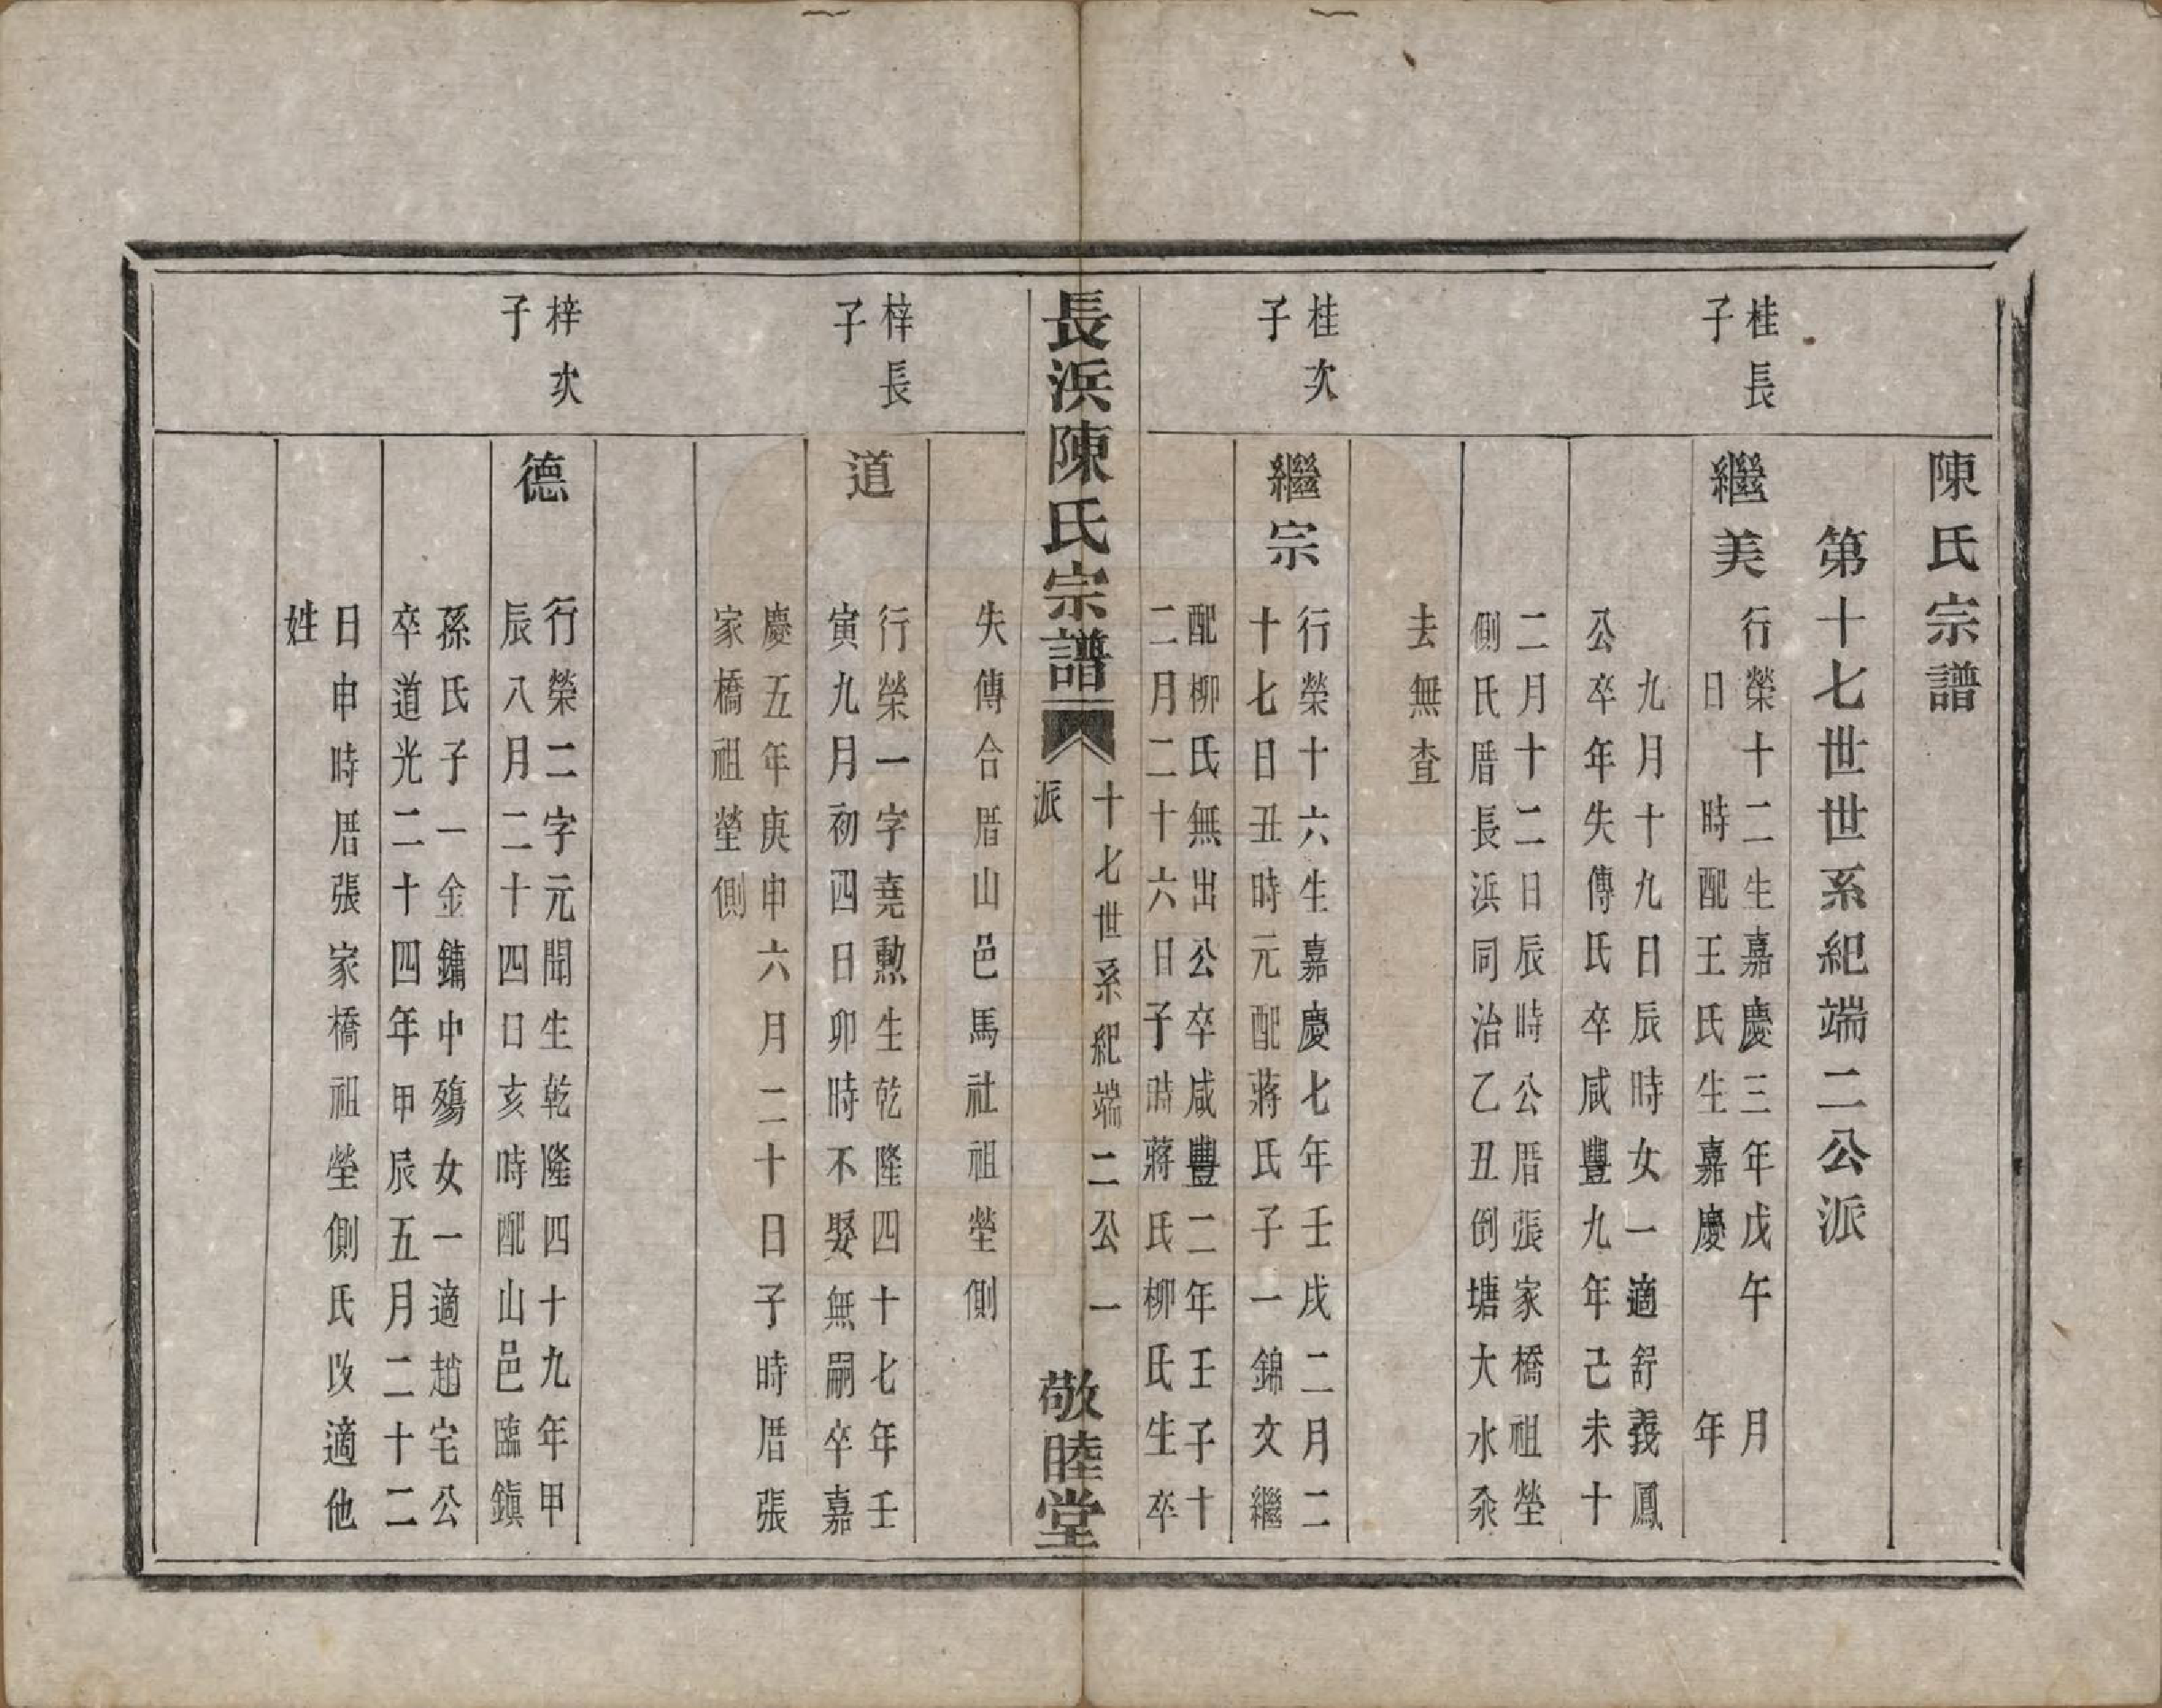 陳氏宗譜
第十七世世系紀端二公派
桂長
子
繼美
行榮十二生嘉慶三年戊午　月
日　時配王氏生嘉慶　年
九月十九日辰時女一適舒義鳳
公卒年失傳氏卒咸豐九年己未十
二月十二日辰時公厝張家橋祖塋
側氏厝長浜同治乙丑倒塘大水汆
去無查
桂次
子
繼宗
行榮十六生嘉慶七年壬戌二月二
十七日丑時元配蔣氏子一錦文繼
配柳氏無出公卒咸豐二年壬子十
二月二十六日子時蔣氏柳氏生卒
長浜陳氏宗譜
十七世系紀端二公一
派
敬睦堂
失傳合厝山邑馬社祖塋側
梓長
子
道
行榮一字堯勲生乾隆四十七年壬
寅九月初四日卯時不娶無嗣卒嘉
慶五年庚申六月二十日子時厝張
家橋祖塋側
梓次
子
德
行榮二字元聞生乾隆四十九年甲
辰八月二十四日亥時配山邑臨鎭
孫氏子一金鏽中殤女一適趙宅公
卒道光二十四年甲辰五月二十二
日申時厝張家橋祖塋側氏改適他
姓